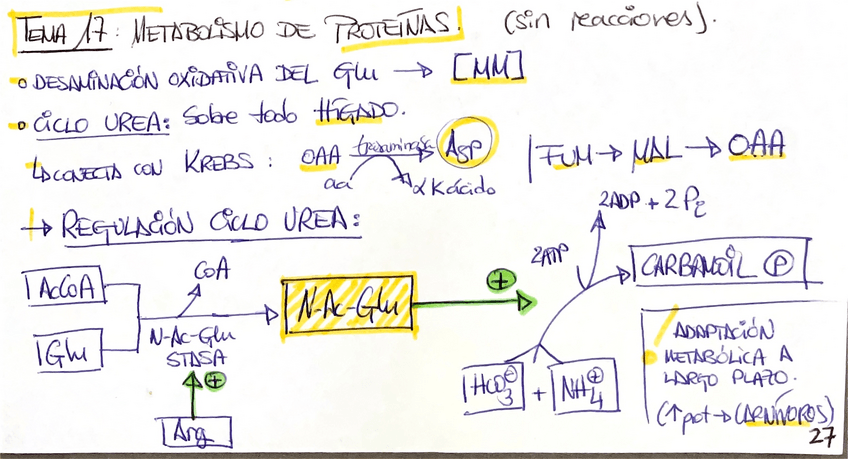 TEMA 17: METABOLISMO DE PROTEÍNAS. (sin reacciones).
DESAMINACIÓN OXIDATIVA DEL Glu → [MM]
CICLO UREA: Sobre todo HÍGADO.
↳ CONECTA CON KREBS: OAA transaminasa → Asp | FUM → MAL → OAA
aa αKácido
→ REGULACIÓN CICLO UREA:
2ADP + 2Pi
2ATP
CoA
CARBAMOIL P
AcCoA
N-Ac-Glu +
N-Ac-Glu
STASA
Glu
+
HCO3⊖ + NH4⊕
Arg
ADAPTACIÓN
METABÓLICA A
LARGO PLAZO.
(↑pot → CARNÍVOROS)
27